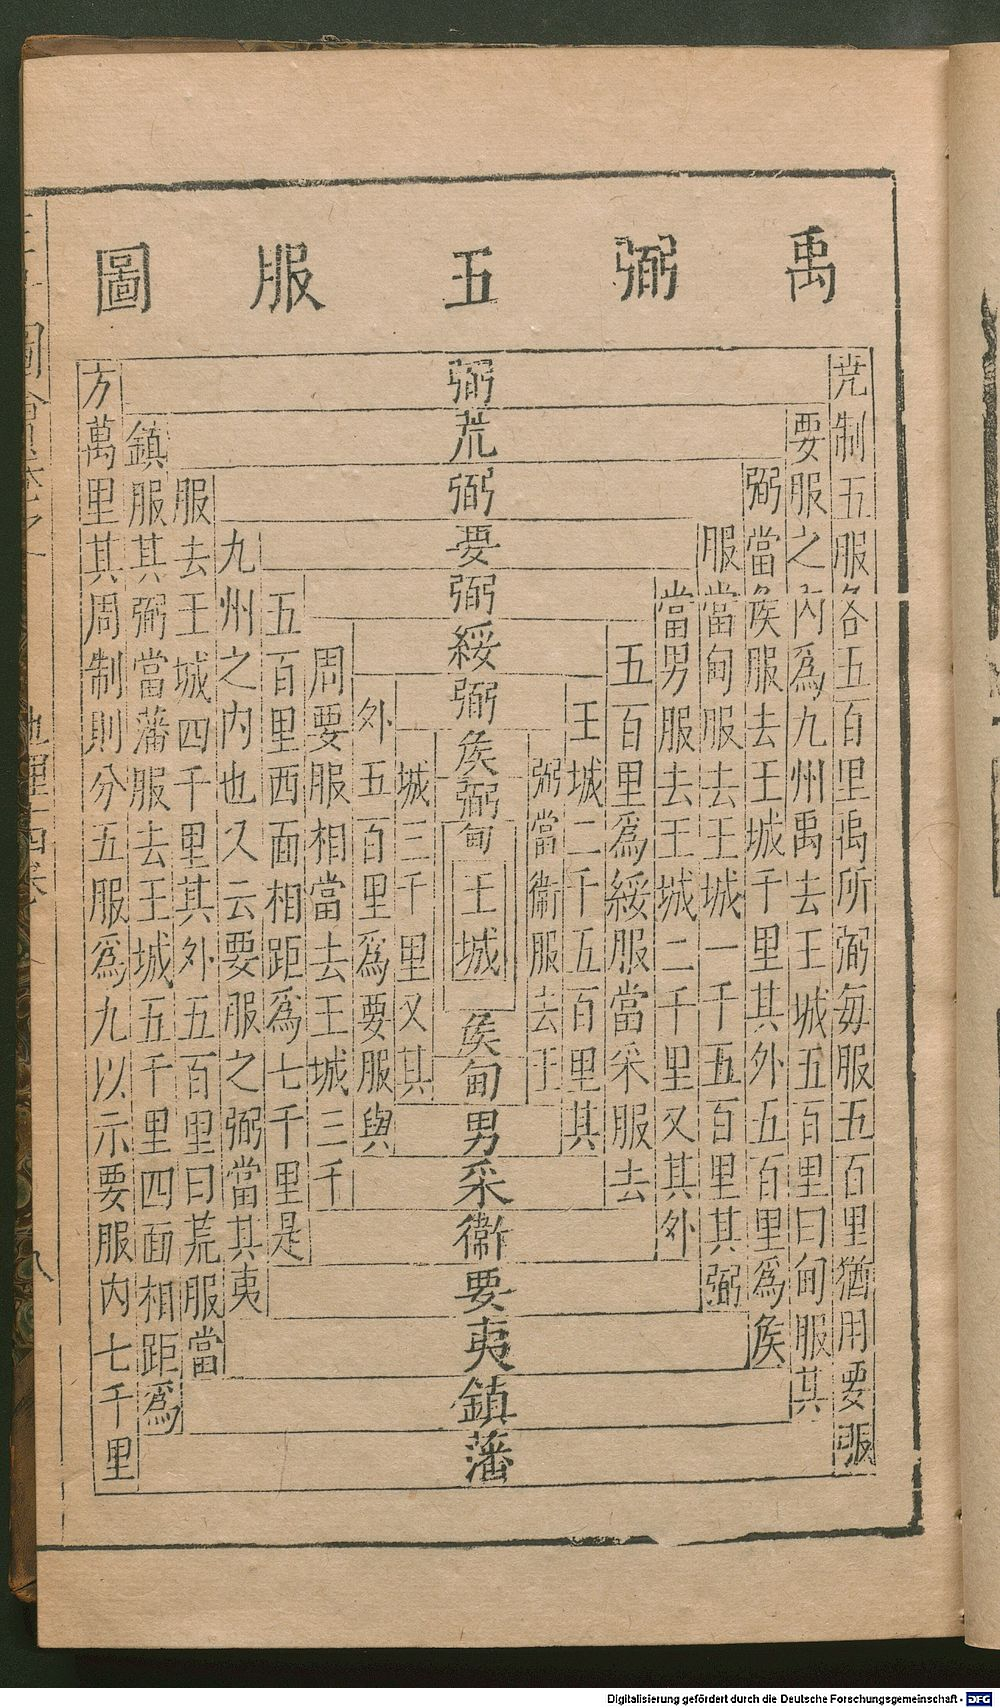 禹弼五服圖
尭制五服各五百里禹所弼每服五百里猶用要服
要服之內爲九州禹去王城五百里曰甸服其
弼當矦服去王城千里其外五百里爲矦
服當甸服去王城一千五百里其弼
當男服去王城二千里又其外
五百里爲綏服當采服去
王城二千五百里其
弼當衞服去王
弼荒弼要弼綏弼矦弼甸
王城
矦甸男采衞要夷鎮藩
城三千里又其
外五百里爲要服與
周要服相當去王城三千
五百里西面相距爲七千里是
九州之内也又云要服之弼當其夷
服去王城四千里其外五百里曰荒服當
鎮服其弼當藩服去王城五千里四面相距爲
方萬里其周制則分五服爲九以示要服内七千里
圖會
地理十四卷
八
Digitalisierung gefördert durch die Deutsche Forschungsgemeinschaft - DFG